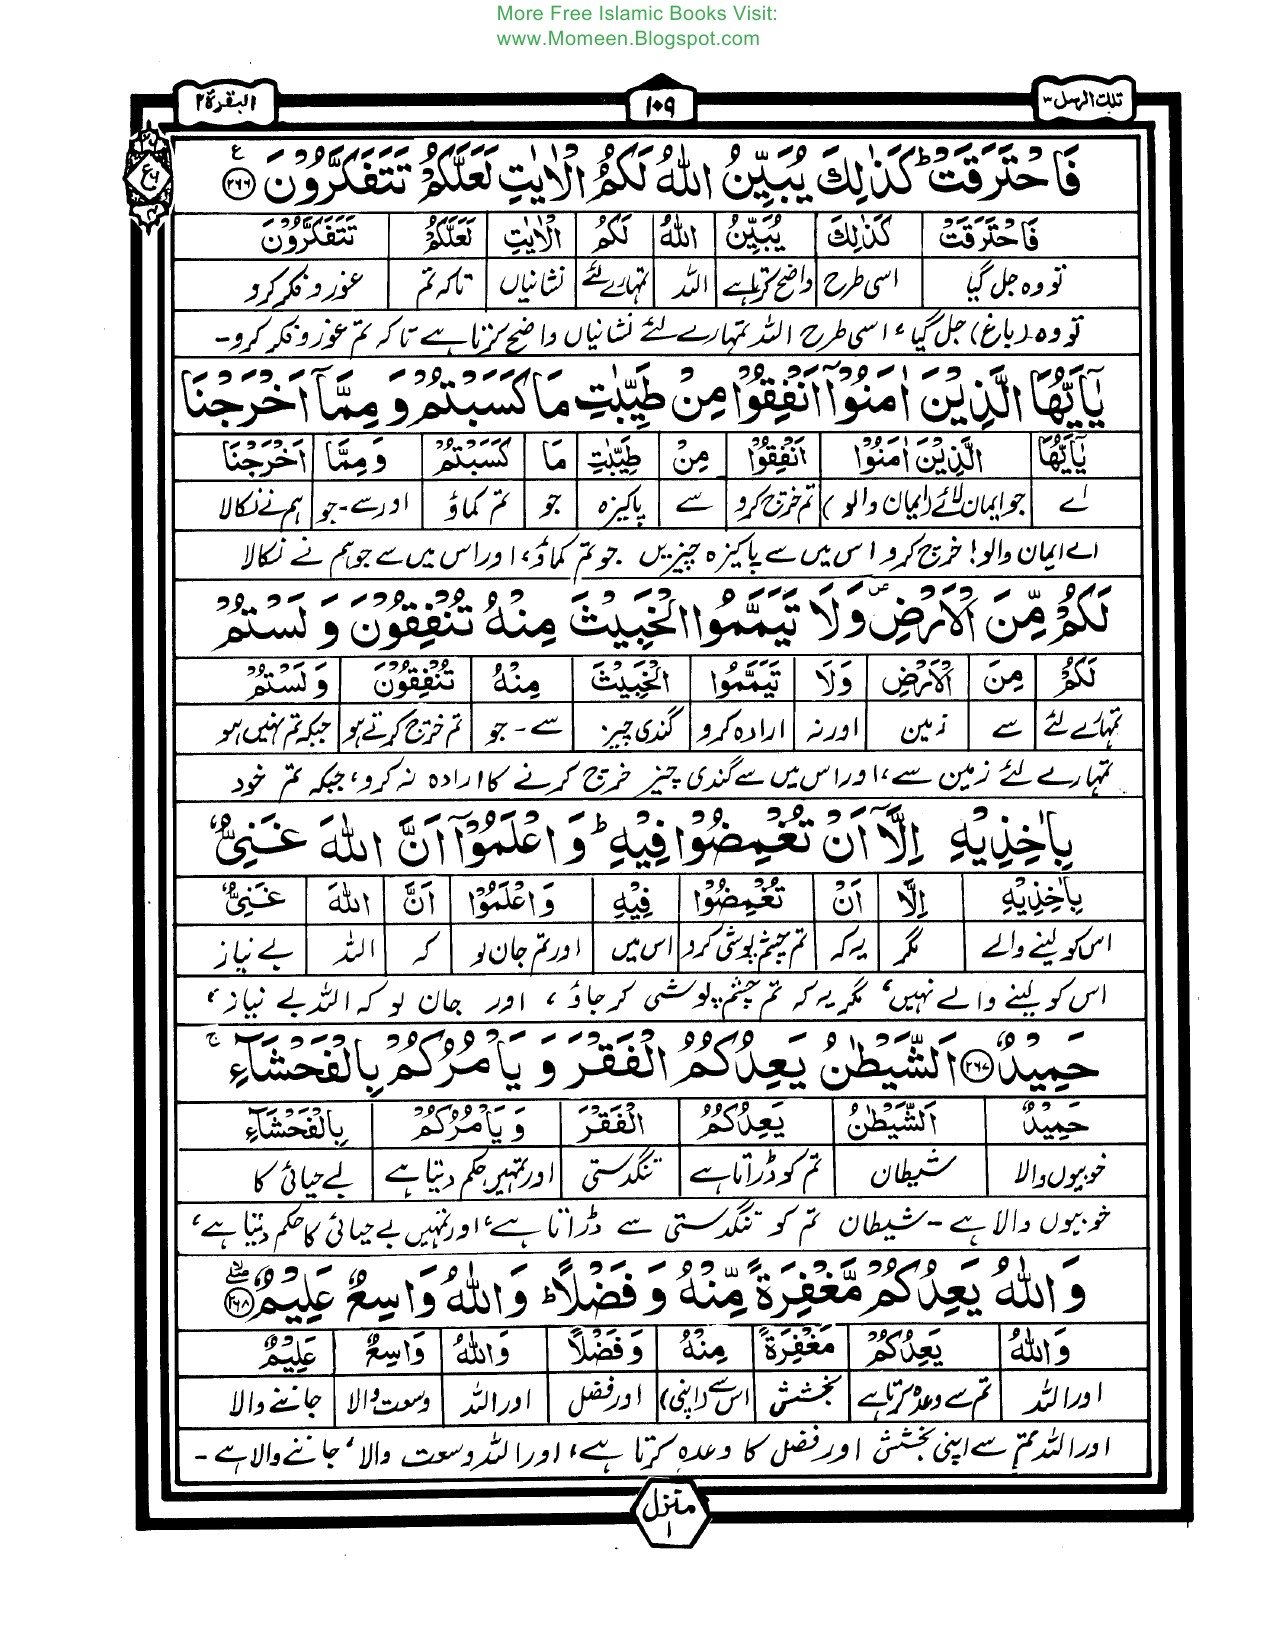 More Free Islamic Books Visit:
www.Momeen.Blogspot.com
تلك الرسل ۳
۱۰۹
البقرة ۲
فَاحْتَرَقَتْ ؕ كَذٰلِكَ یُبَیِّنُ اللّٰهُ لَكُمُ الْاٰیٰتِ لَعَلَّكُمْ تَتَفَكَّرُوْنَ ۲۶۶ ع
فَاحْتَرَقَتْ كَذٰلِكَ یُبَیِّنُ اللّٰهُ لَكُمُ الْاٰیٰتِ لَعَلَّكُمْ تَتَفَكَّرُوْنَ
تو وہ جل گیا اسی طرح واضح کرتا ہے اللہ تمہارے لئے نشانیاں تاکہ تم غور و فکر کرو
تو وہ (باغ) جل گیا، اسی طرح اللہ تمہارے لئے نشانیاں واضح کرتا ہے تاکہ تم غور و فکر کرو۔
یٰۤاَیُّهَا الَّذِیْنَ اٰمَنُوْۤا اَنْفِقُوْا مِنْ طَیِّبٰتِ مَا كَسَبْتُمْ وَ مِمَّاۤ اَخْرَجْنَا
یٰۤاَیُّهَا الَّذِیْنَ اٰمَنُوْا اَنْفِقُوْا مِنْ طَیِّبٰتِ مَا كَسَبْتُمْ وَ مِمَّا اَخْرَجْنَا
اے جو ایمان لائے (ایمان والو) تم خرچ کرو سے پاکیزہ جو تم کماؤ اور سے۔جو ہم نے نکالا
اے ایمان والو! خرچ کرو اس میں سے پاکیزہ چیزیں جو تم کماؤ، اور اس میں سے جو ہم نے نکالا
لَكُمْ مِّنَ الْاَرْضِ ۪ وَلَا تَیَمَّمُوا الْخَبِیْثَ مِنْهُ تُنْفِقُوْنَ وَ لَسْتُمْ
لَكُمْ مِنَ الْاَرْضِ وَلَا تَیَمَّمُوا الْخَبِیْثَ مِنْهُ تُنْفِقُوْنَ وَ لَسْتُمْ
تمہارے لئے سے زمین اور نہ ارادہ کرو گندی چیز سے۔جو تم خرچ کرتے ہو جبکہ تم نہیں ہو
تمہارے لئے زمین سے، اور اس میں سے گندی چیز خرچ کرنے کا ارادہ نہ کرو، جبکہ تم خود
بِاٰخِذِیْهِ اِلَّاۤ اَنْ تُغْمِضُوْا فِیْهِ ؕ وَ اعْلَمُوْۤا اَنَّ اللّٰهَ غَنِیٌّ
بِاٰخِذِیْهِ اِلَّا اَنْ تُغْمِضُوْا فِیْهِ وَ اعْلَمُوْا اَنَّ اللّٰهَ غَنِیٌّ
اس کو لینے والے مگر یہ کہ تم چشم پوشی کرو اس میں اور تم جان لو کہ اللہ بے نیاز
اس کو لینے والے نہیں، مگر یہ کہ تم چشم پوشی کر جاؤ، اور جان لو کہ اللہ بے نیاز،
حَمِیْدٌ ۲۶۷ اَلشَّیْطٰنُ یَعِدُكُمُ الْفَقْرَ وَ یَاْمُرُكُمْ بِالْفَحْشَآءِ ۚ
حَمِیْدٌ اَلشَّیْطٰنُ یَعِدُكُمُ الْفَقْرَ وَ یَاْمُرُكُمْ بِالْفَحْشَآءِ
خوبیوں والا شیطان تم کو ڈراتا ہے تنگدستی اور تمہیں حکم دیتا ہے بے حیائی کا
خوبیوں والا ہے۔ شیطان تم کو تنگدستی سے ڈراتا ہے، اور تمہیں بے حیائی کا حکم دیتا ہے،
وَ اللّٰهُ یَعِدُكُمْ مَّغْفِرَةً مِّنْهُ وَ فَضْلًا ؕ وَ اللّٰهُ وَاسِعٌ عَلِیْمٌ ۲۶۸
وَ اللّٰهُ یَعِدُكُمْ مَغْفِرَةً مِنْهُ وَ فَضْلًا وَ اللّٰهُ وَاسِعٌ عَلِیْمٌ
اور اللہ تم سے وعدہ کرتا ہے بخشش اس سے (اپنی) اور فضل اور اللہ وسعت والا جاننے والا
اور اللہ تم سے اپنی بخشش اور فضل کا وعدہ کرتا ہے، اور اللہ وسعت والا، جاننے والا ہے۔
منزل
۱